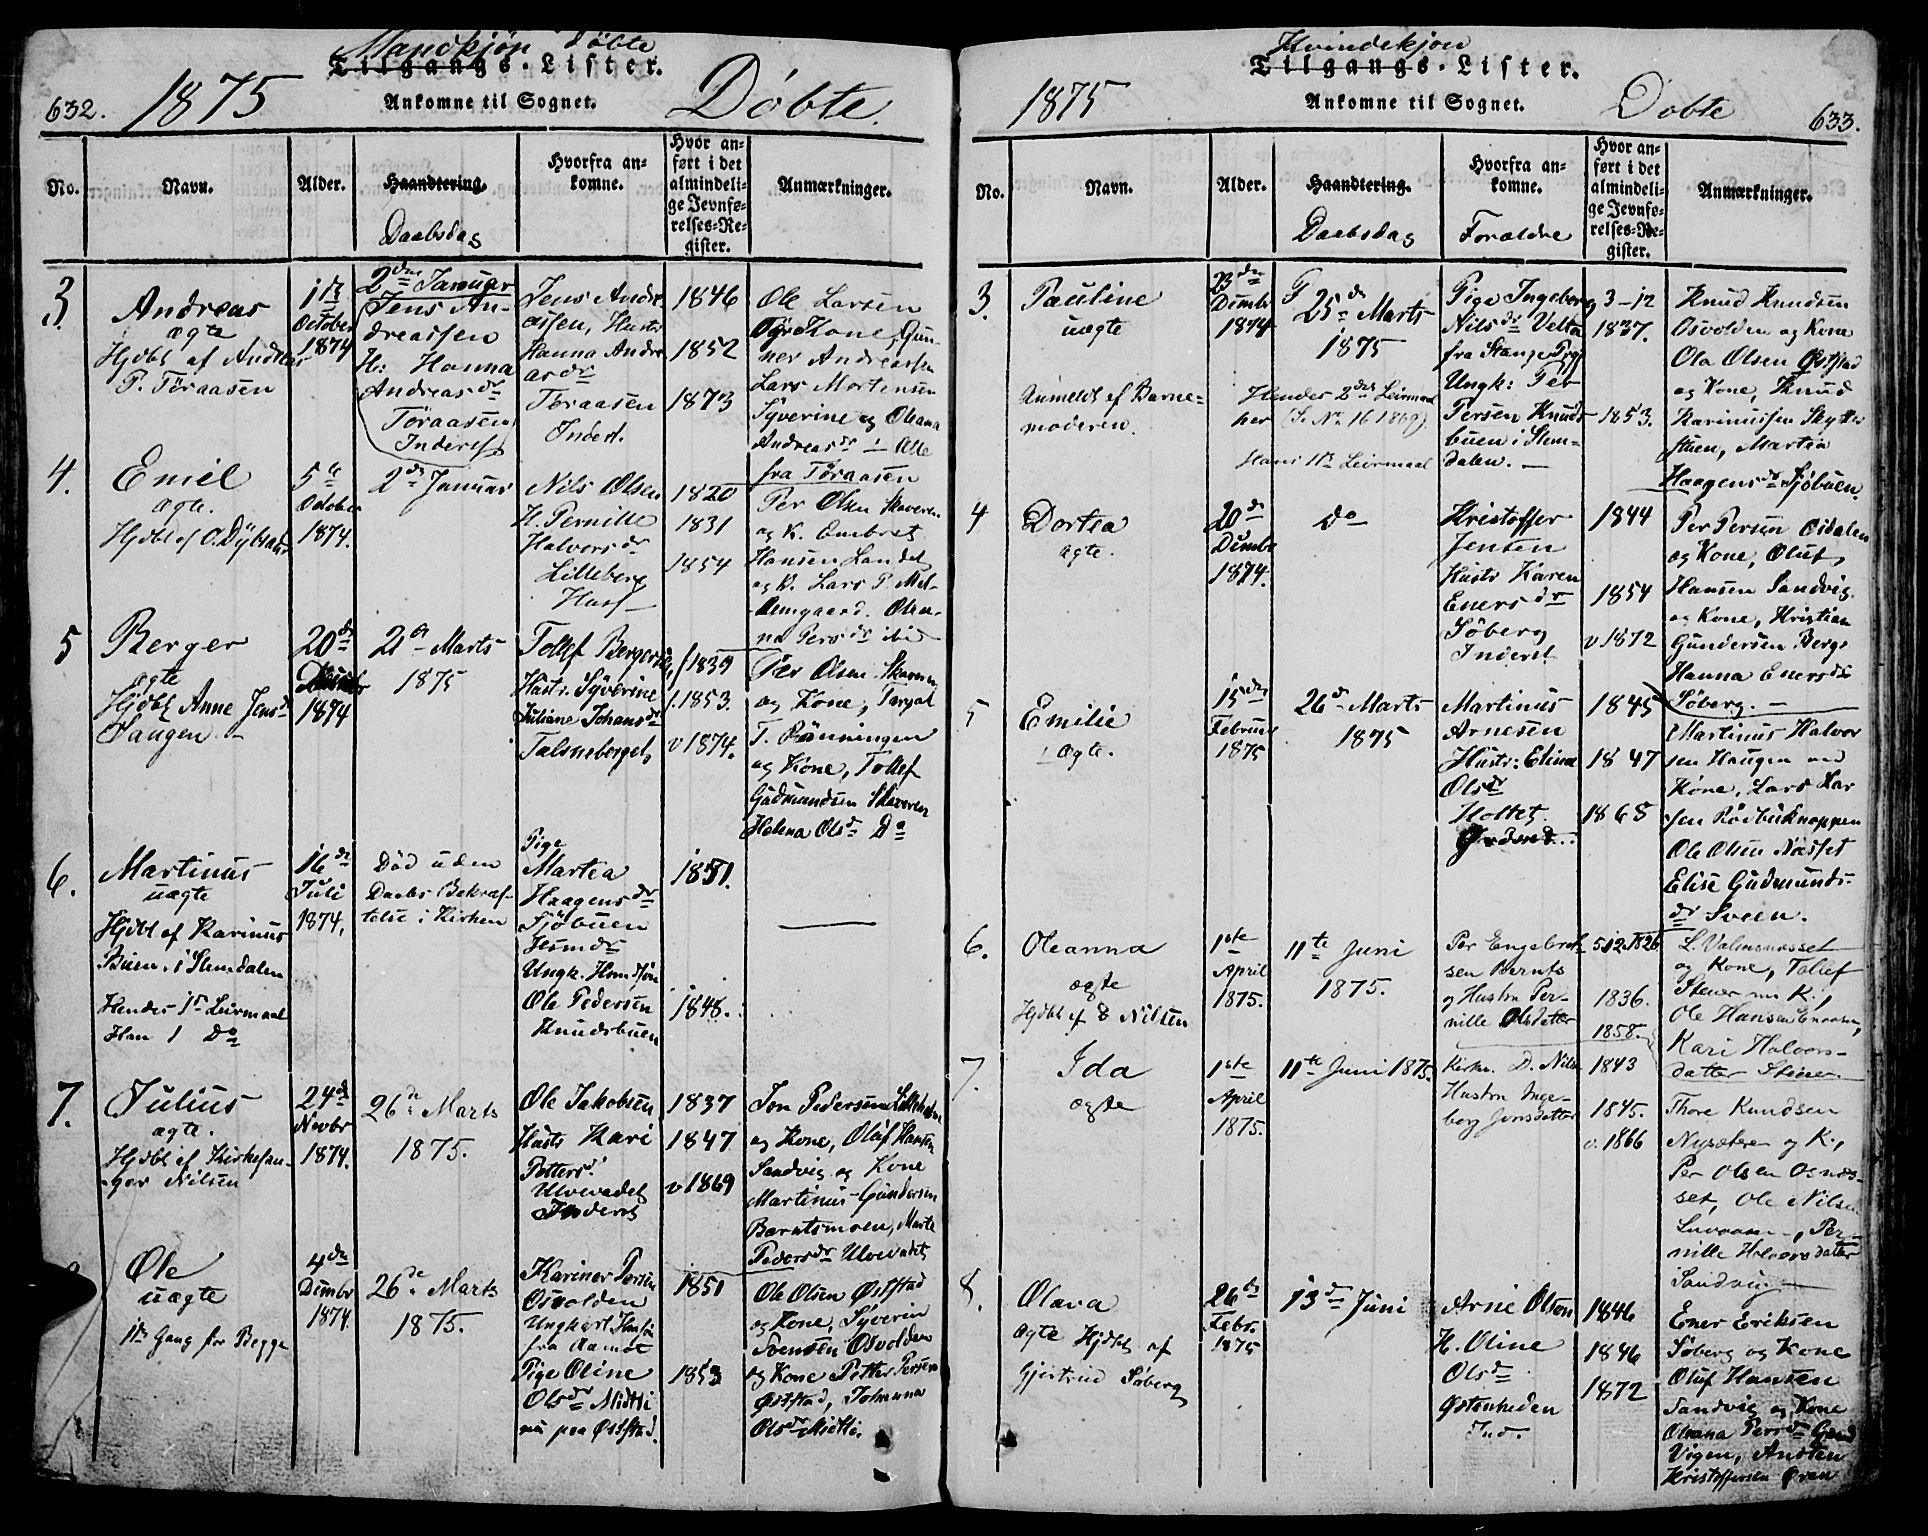 Mandkjøn Døbte
Tilgangs-Lister.
632. 1875 Ankomne til Sognet. Døbte.
No. Navn. Alder. Haandtering. Hvorfra an-
komne. Hvor an-
ført i det
almindeli-
ge Jevnfø-
relses-Re-
gister. Anmærkninger.
Daabsdag
3.
Andreas
ægte
Hjdbt af Andreas
P. Töraasen
1ste
October
1874
2den Januar
Jens An-
dreassen
H: Hanna
Andreasdr
Töraasen
Inderst
Jens Andre
assen, Hustr
Hanna Andre
asdr
Töraasen
Inderst.
1846
1852
1873
Ole Larsen
Kone, Gun-
ner Andreassen
Lars Mortensen
Syverine og Oleana
Andreasdr - Alle
fra Töraasen
4.
Emil
ægte.
Hjdbt af O. Dybsæt
5te
Octobr
1874.
2den Januar
Nils Olsen
H. Pernille
Halvorsdr
Lilleberg
Husf
1820
1831
1854
Per Olsen Skaveren
og K. Embret
Hansen Landet
og K. Lars P. Mel-
demgaard. Olea-
na Persdr ibid
5
Berger
ægte
Hjdbt Anne Jensdr
Saugen -
20de
Decembr
1874
21de Marts
1875
Tollef Bergersen
Hustr. Syverine
Juliane Johansdr
Talsneberget
1839
1853.
v 1874.
Per Olsen Skaveren
og Kone, Torgal
T. Rönningen
og Kone, Tollef
Gudmundsen Skaveren
Helena Olsdr Do
6.
Martinus
uægte
Hjdbt af Karinus
Buen i Slemdalen
Hendes 1ste Leirmaal
Han 1 Do
16de
Juli
1874.
Död uden
Daabs Bekræf-
telse i Kirken
Pige
Martea
Haagensdr
Sjöbuen
Ungk.
Ole Pedersen
Knudsbuen
1851.
1848.
7.
Julius
ægte.
Hjdbt af Kirkesan-
ger Nilsen
24de
Novbr
1874.
26de Marts
1875.
Ole Jakobsen
Hustr Kari
Pettersdr
Ulvevadet
Inderst
1837
1847
v 1869
Jon Pedersen
og Kone, Oluf Hansen
Sandvig og Kone
Martinus Gundersen
Berntsmoen, Marte
Pedersdr Ulvevadet
Ole
uægte
1ste Gang for Begge
4de
Dcmbr
1874.
26de Marts
1875.
Kariner Persen
Osvolden
Ungkarl
fra Aamot
Pige Oline
Olsdr Midtli
nu paa Öststad.
1851
1853
Ole Olsen Öststad
og Kone, Syverin
Svensen Osvolden
og Kone Petter Persen
Öststad, Johanna
Olsdr Midtli.
Kvindekjøn
Tilgangs-Lister.
1875 Ankomne til Sognet. Døbte 633.
No. Navn. Alder. Haandtering. Hvorfra an-
komne. Hvor an-
ført i det
almindeli-
ge Jevnfø-
relses-Re-
gister. Anmærkninger.
Daabsdag Forældre
3.
Pauline
uægte
Anmeldt af Barne-
moderen.
23de
Dcmbr
1874
25de Marts
1875
Hendes 2det Leirmaal
her (S. No 16 1869)
Hans 1ste Leirmaal
Pige Ingeborg
Nilsdr Velta
fra Stange
Ungk: Pet-
Persen Knuds-
buen i Slem-
dalen. -
3-12
1837.
1853.
Knud Knudsen
Osvolden og Kone
Ola Olsen Öststad
og Kone, Knud
Karinussen
stuen, Martia
Haagensdr Sjöbuen.
4
Dortea
ægte.
20de
Dcmbr
1874.
do
Kristoffer
Jensen
Hustr Karen
Enersdr
Söberg
Inderst
1844
1854
v 1872
Per Persen Osdalen
og Kone, Oluf
Hansen Sandvig
og Kone, Kristian
Gundersen Berge
Hanna Enersdr
Söberg. -
5
Emilie
ægte.
15de
Februar
1875
26de Marts
1875
Martinus
Arnesen
Hustr: Elina
Olsdr
Holtet.
1845
1847
1865
Martinus Halvor
sen Haugen med
Kone, Lars Lar
sen Rödbuknappen
Ole Olsen Næsset
Elise Gudmunds-
dr Sveen.
6.
Oleanna
ægte
Hjdbt af D Nilsen
1ste
April
1875.
11te Juni
1875.
Per Engebret-
sen Bernts
og Hustru Per-
nille Olsdatter
5-12 1826
1836.
1858.
L. Valmsnæsset
og Kone, Tollef
K.,
Ole Hansen
Kari Halvors-
datter
7.
Ida
ægte
1ste
April
1875.
11te Juni 1875.
Kirkes. D. Nilsen
Hustru Inge-
borg Jensdatter
1843
1845.
v. 1866
Thore Knudsen
Nysæteren og K.,
Per Olsen Osnæs-
set, Ole Nilsen
Per-
nille Halvorsdatter
Sandvig
8.
Olava
ægte Hjdbt af
Gjertrud Söberg
26de
Febr.
1875
13de Juni
Arne Olsen
H. Oline
Olsdr
Östenheden
Ind.
1846
1846
1872
Ener Eriksen
Söberg og Kone
Oluf Hansen
Sandvig og Kone
Oleana Persdr
Vigen, Andten
Kristoffersen Öran